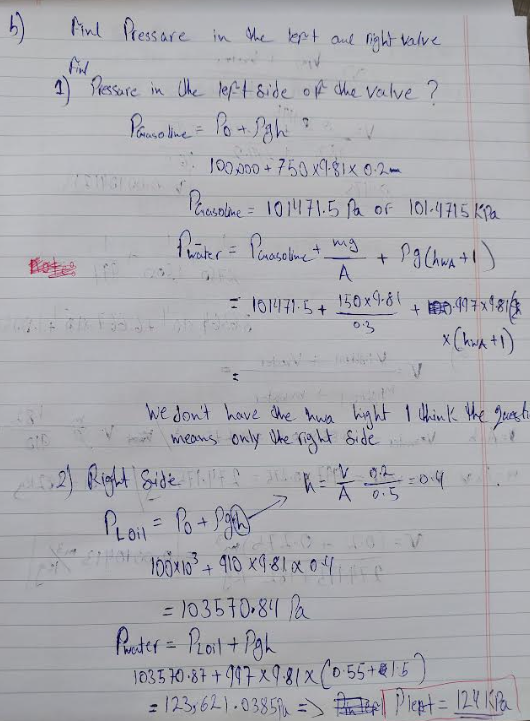 b) Find Pressure in the left and right valve
Find
1) Pressure in the left side of the valve ?
PGasoline = Po + Pgh ?
100,000 + 750 x 9.81 x 0.2
PGasoline = 101471.5 Pa or 101.4715 KPa
Pwater = PGasoline + mg/A + Pg(hwA + 1)
= 101471.5 + 150x9.81/0.3 + 997x9.81
x (hwA+1)
=
We don't have the hwa hight I think the questi
means only the right side
2) Right Side h = V/A 0.2/0.5 = 0.4
PLoil = Po + Pgh
100x10³ + 910 x 9.81 x 0.4
= 103570.84 Pa
Pwater = PLoil + Pgh
103570.87 + 997 x 9.81 x (0.55 + 1.5)
= 123,621.0385Pa => Pleft = 124 KPa